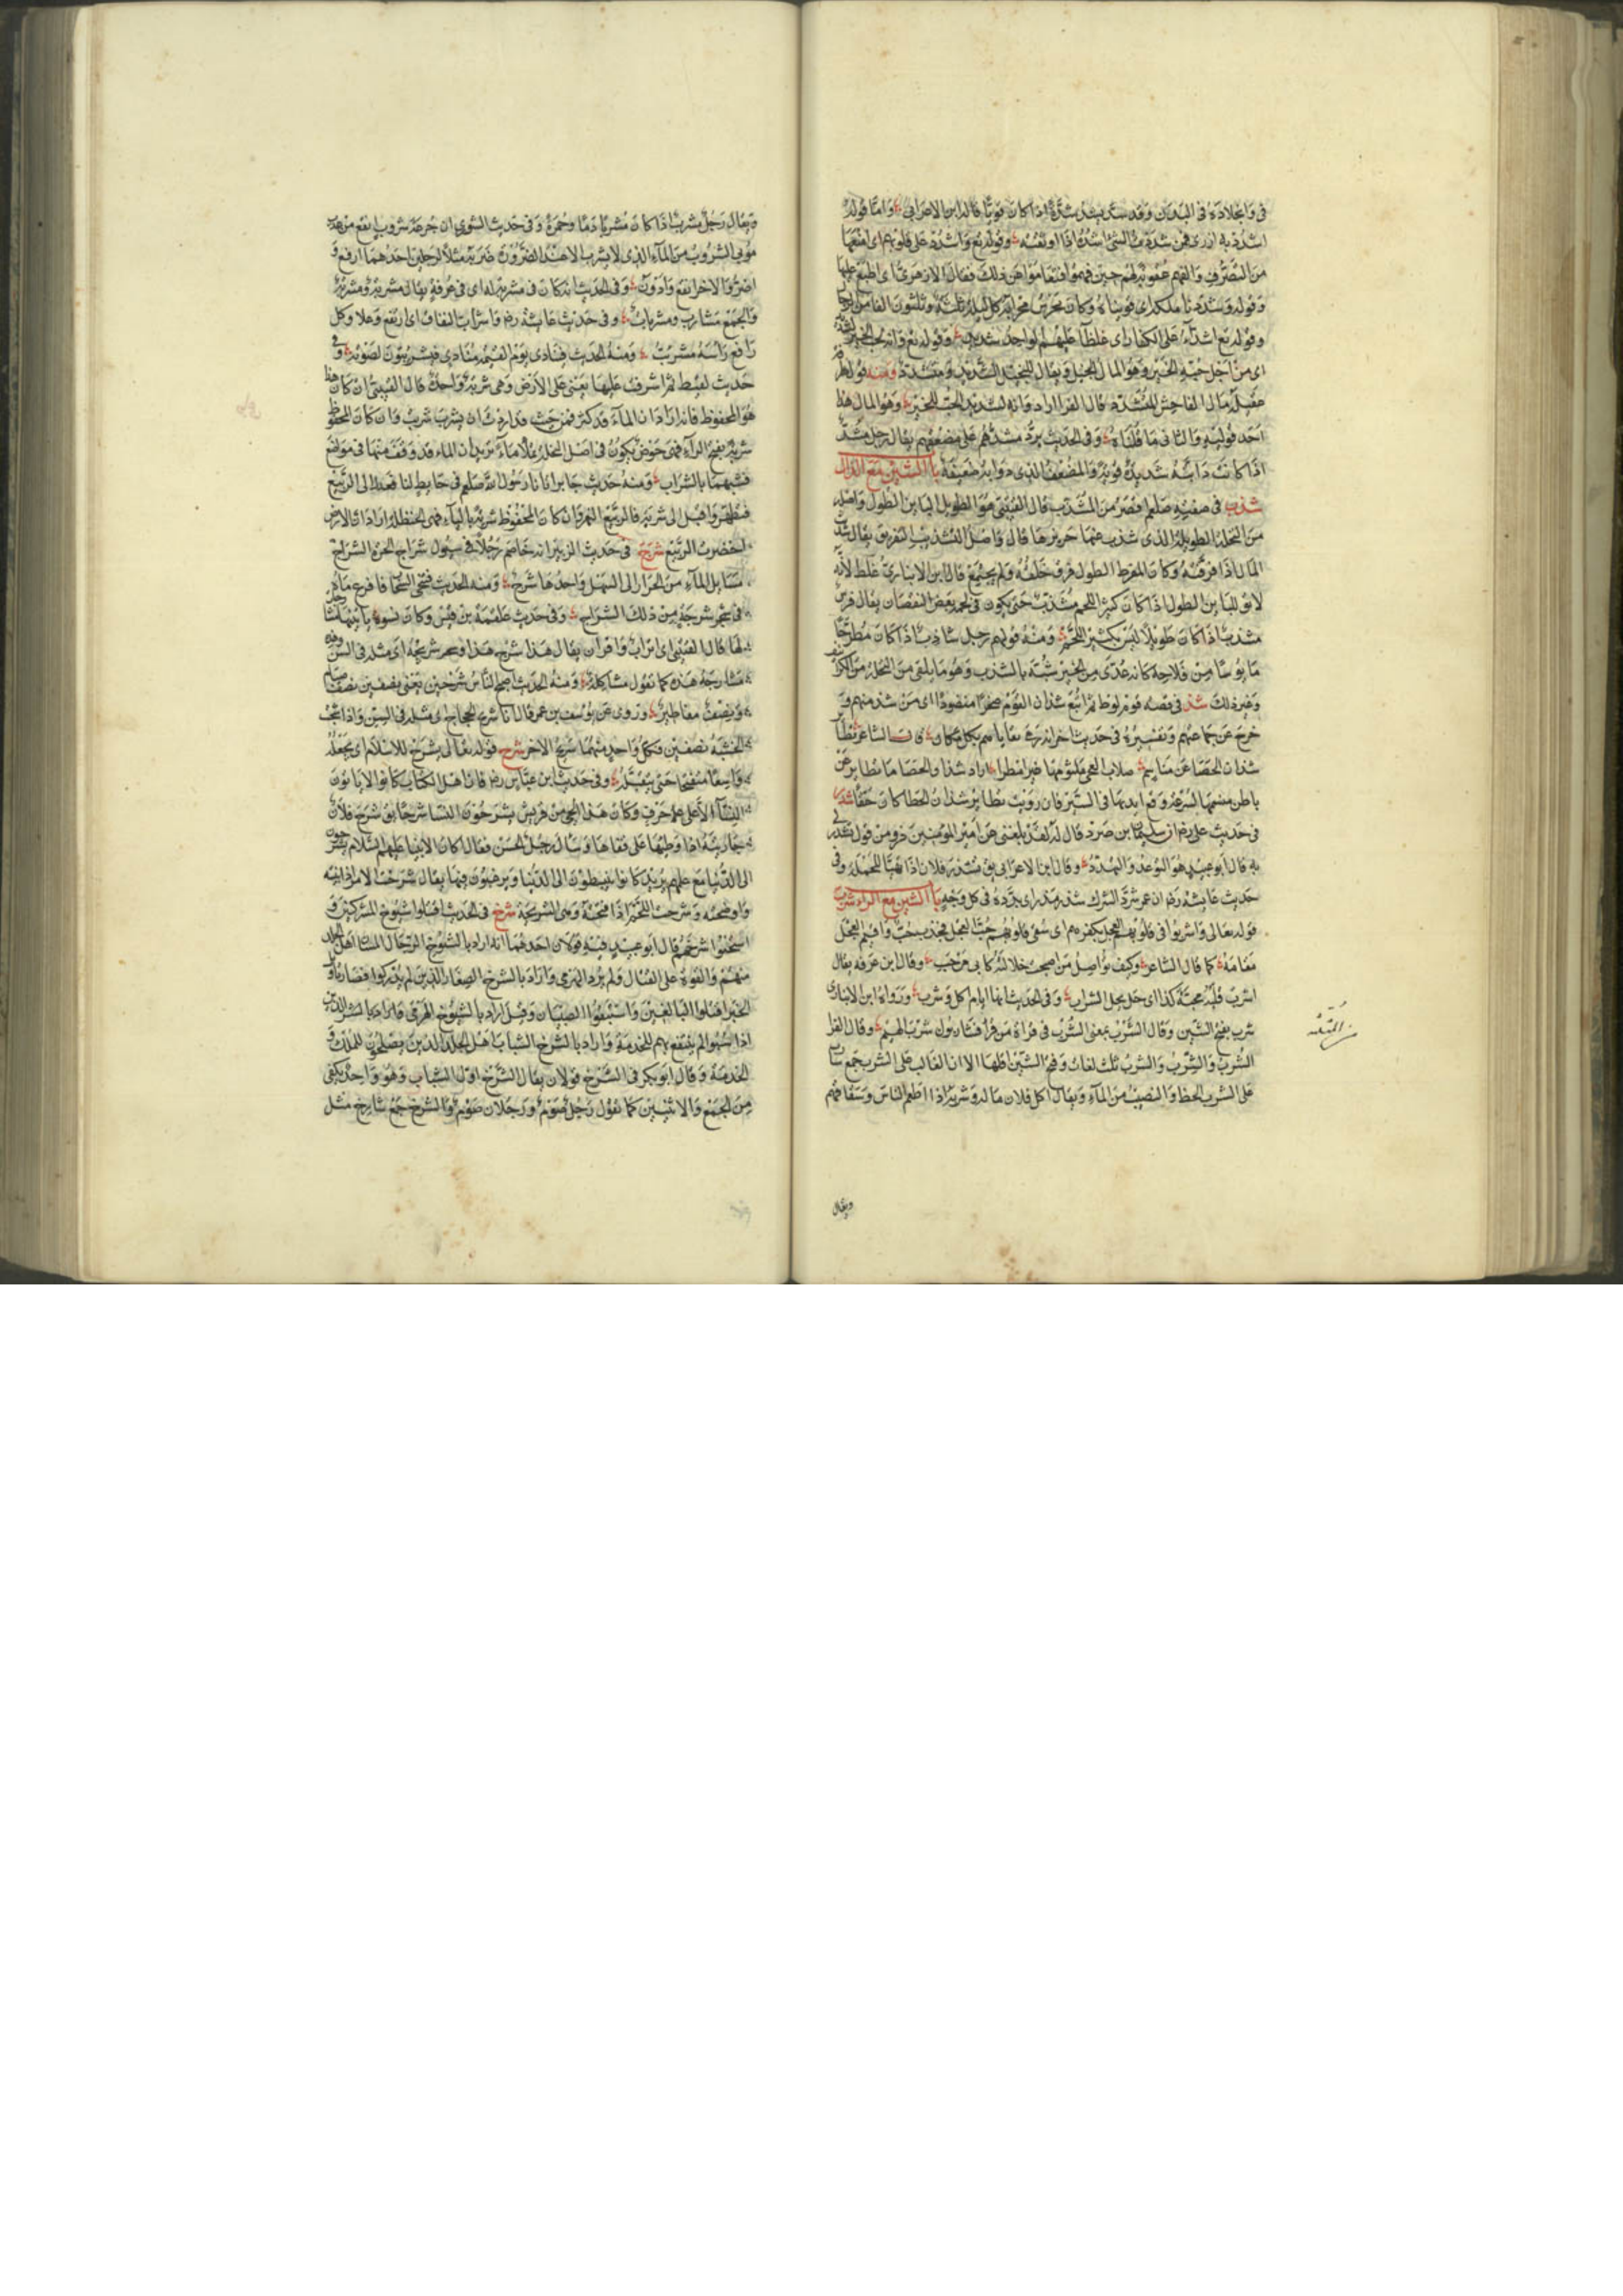 في والجلادة في البدن وقد شد يشد شدة اذا كان قويا قاله ابن الاعرابي واما قوله
اشدد به ازرى فمن شددت الشئ اشده اذا اوثقته وقوله تع واشدد على قلوبهم اى امنعها
من التصرف والفهم عقوبة لهم حين فهموا فتعاموا عن ذلك فقال الازهرى اى اطبع عليها
وقوله وشددنا ملكه اى قويناه وكان يحرس محرابه كل ليلة ثلثة وثلثون الفا من
وقوله تع اشداء على الكفار اى غلظاء عليهم الواحد شديد وقوله تع وانه لحب الخير لشديد
اى من اجل حبه الخير وهو المال لبخيل ويقال للبخيل الشديد ومتشدد ومنه قول طرفة
عقيلة مال الفاحش المتشدد قال الفرا اراد وانه لشديد الحب للخير وهو المال هذا
احد قوليه والثانى ما قلناه وفى الحديث يرد مشدهم على مضعفهم يقال رجل مشد
اذا كانت دابته شديدة قوية والمضعف الذى دوابه ضعيفة باب الشين مع الذال
شذب فى صفته صلعم اقصر من المشذب قال القتيبى هو الطويل الباين الطول واصله
من النخلة الطويلة الذى شذب عنها جريدها قال واصل التشذيب التفريق يقال شذبت
المال اذا فرقته وكان المفرط الطول فرق خلقه ولم يجتمع قال ابن الانبارى غلط لانه
لا يق للباين الطول اذا كان كثير اللحم مشذب حتى يكون فى لحمه بعض النقصان يقال فرس
مشذب اذا كان طويلا ليس بكثير اللحم ومنه قولهم رجل شاذب اذا كان مطرحا
مايوسا من فلاحه كانه عدى من الخير شبه بالشذب وهو ما يلقى من النخلة من الكرانيف
وغير ذلك شذ فى قصة قوم لوط ثم اتبع شذان القوم صخرا منضودا اى من شذ منهم و
خرج عن جماعتهم وتفسيره فى حديث اخر انه رمى بقاياهم بكل مكان قال الشاعر تطاير
شذان الحصا عن مناسم صلاب العجى ملثومها غير امعرا اراد شذاذ الحصا ما تطاير عن
باطن منسمها لسرعة وقع ايديها فى السير فان رويت تطاير شذان الحصا كان حقا شذر
فى حديث على رضه ان سليمان بن صرد قال له لقد بلغنى عن امير المؤمنين ذرو من قول تشذر لى
به قال ابو عبيد هو التوعد والتهدد وقال ابن الاعرابى يق تشذر فلان اذا تهيا للحملة وفى
حديث عايشة رضه ان عمر شرد الشرك شذر مذر اى بدده فى كل وجه باب الشين مع الراء شرب
قوله تعالى واشربوا فى قلوبهم العجل بكفرهم اى سقى قلوبهم حب العجل فحذف حب واقيم العجل
مقامه كما قال الشاعر وكيف تواصل من اصبحت خلالته كابى مرحب وقال ابن عرفة يقال
اشرب قلبه محبة كذا اى حل محل الشراب وفى الحديث انها ايام اكل وشرب ورواه ابن الانبارى
شرب بفتح الشين وقال الشرب بمعنى الشرب فى قراة من قرا فشاربون شرب الهيم وقال الفرا
الشرب والشرب والشرب ثلث لغات وفتح الشين اقلها الا ان الغالب على الشرب جمع شارب
على الشرب الحظ والنصيب من الماء ويقال اكل فلان مالى وشربه اذا اطعم الناس وسقاهم
ويقال
ويقال رجل مشرب اذا كان مشربا دما وحمرة وفى حديث الشورى ان جرعة شروب انفع من عذب
موبى الشروب من الماء الذى لا يشرب الا عند الضرورة ضربه مثلا لرجلين احدهما ارفع و
اضر والاخر انفع وادون وفى الحديث انه كان فى مشربة له اى فى غرفة يقال مشربة ومشربة
والجمع مشارب ومشربات وفى حديث عايشة رضه واشراب النفاق اى ارتفع وعلا وكل
رافع راسه مشرئب ومنه الحديث فينادى يوم القيمة مناد فيشرئبون لصوته وفى
حديث لقيط ثم اشرفت عليها يعنى على الارض وهى شربة واحدة قال القتيبى ان كان هذا
هو المحفوظ فانه اراد ان الماء قد كثر فمن حيث قدارت ان يشرب شربت وان كان المحفوظ
شربة بفتح الراء فهى حوض يكون فى اصل النخلة يملا ماء يريد ان الماء قد وقف منها فى مواضع
فشبهها بالشراب ومنه حديث جابر اتانا رسول الله صلعم فى حايط لنا فعدل الى الربيع
فتطهر واقبل الى شربة فالربيع النهر وان كان المحفوظ شرية بالياء فهى الحنظلة اراد ان الارض
اخضرت الربيع شرج فى حديث الزبير انه خاصم رجلا فى سيول شراج الحرة الشراج
مسايل الماء من الحرار الى السهل واحدها شرج ومنه الحديث فتنحى السحاب فافرغ ماءه
فى شرجة من ذلك الشراج وفى حديث علقمة بن قيس وكان نسوة ياتينها
لها قال القتيبى اى اتراب واقران يقال هذا شرج هذا وشريجه اى مثله فى السن
ومشارجة هذه كما تقول مشاكلة ومنه الحديث اصبح الناس شرجين يعنى نصفين نصف صيام
ونصف مفاطير وروى عن يوسف بن عمر قال انا شريج الحجاج اى مثله فى السن واذا شقت
الخشبة نصفين فكل واحد منهما شريج الاخر شرح قوله تعالى يشرح للاسلام اى يجعله
واسعا منفسحا حتى يتقبله وفى حديث ابن عباس رضه قال اهل الكتاب كانوا لا ياتون
النساء الا على حرف وكان هذا الحى من قريش يشرحون النسا شرحا يق شرح فلان
جاريته اذا وطيها على قفاها وسال رجل الحسن فقال اكان الانبيا عليهم السلام يشرحون
الى الدنيا مع علمهم يريد كانوا ينبسطون الى الدنيا ويرغبون فيها يقال شرحت الامر اذا بينته
واوضحته وشرحت اللحم اذا فتحته وهى الشريحة شرخ فى الحديث اقتلوا شيوخ المشركين و
استحيوا شرخهم قال ابو عبيد فيه قولان احدهما انه اراد بالشيوخ الرجال المسان اهل الجلد
منهم والقوة على القتال ولم يرد الهرمى واراد بالشرخ الصغار الذين لم يدركوا فصار تاويل
الخبر اقتلوا البالغين واستبقوا الصبيان وقيل اراد بالشيوخ الهرمى فاراد بالشرخ الذين
اذا سبوا لم ينتفع بهم للخدمة واراد بالشرخ الشباب اهل الجلد الذين يصلحون للملك و
الخدمة وقال ابو بكر فى الشرخ قولان يقال الشرخ اول الشباب وهو واحد يكفى
من الجمع والاثنين كما تقول رجل صوم ورجلان صوم والشرخ جمع شارخ مثل